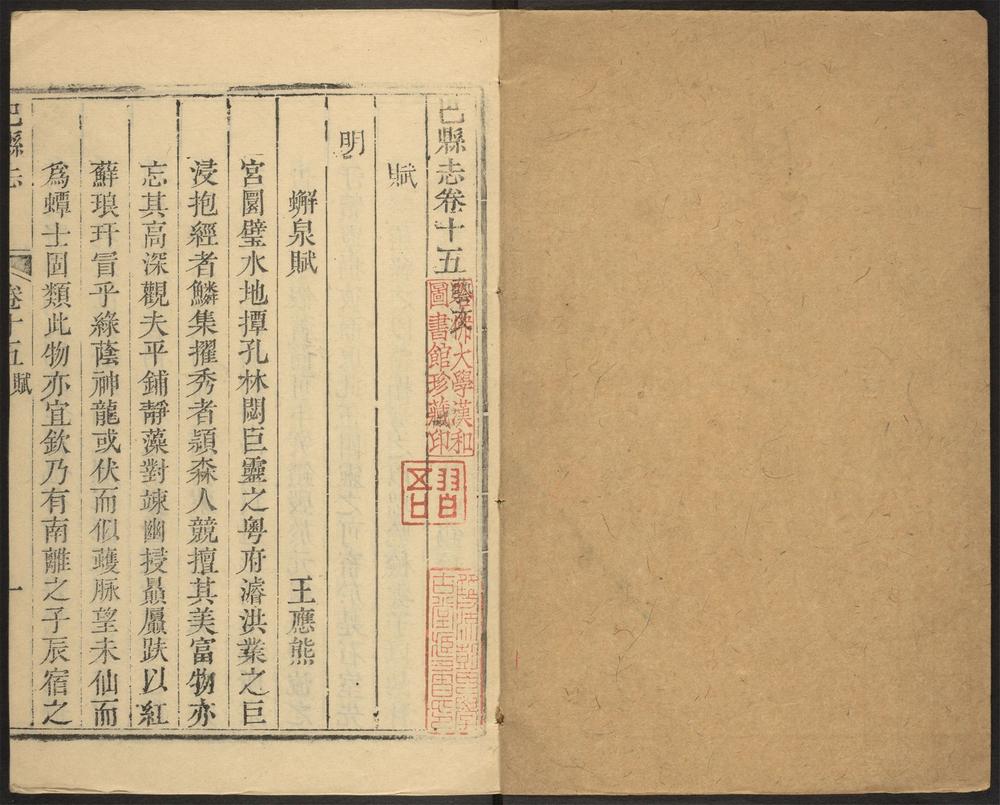 巴縣志卷十五
藝文
賦
明
蠏泉賦 王應熊
宮圜璧水地撢孔林閟巨靈之粤府濬洪業之巨
浸抱經者鱗集擢秀者頴森人競擅其美富物亦
忘其高深觀夫平鋪靜藻對竦幽㨕贔屭趺以紅
蘚琅玕冐乎綠蔭神龍或伏而似蠖脉望未仙而
爲蟫士固類此物亦宜欽乃有南離之子辰宿之
巴縣志
卷十五 賦
一
大學漢和
圖書館珍藏印